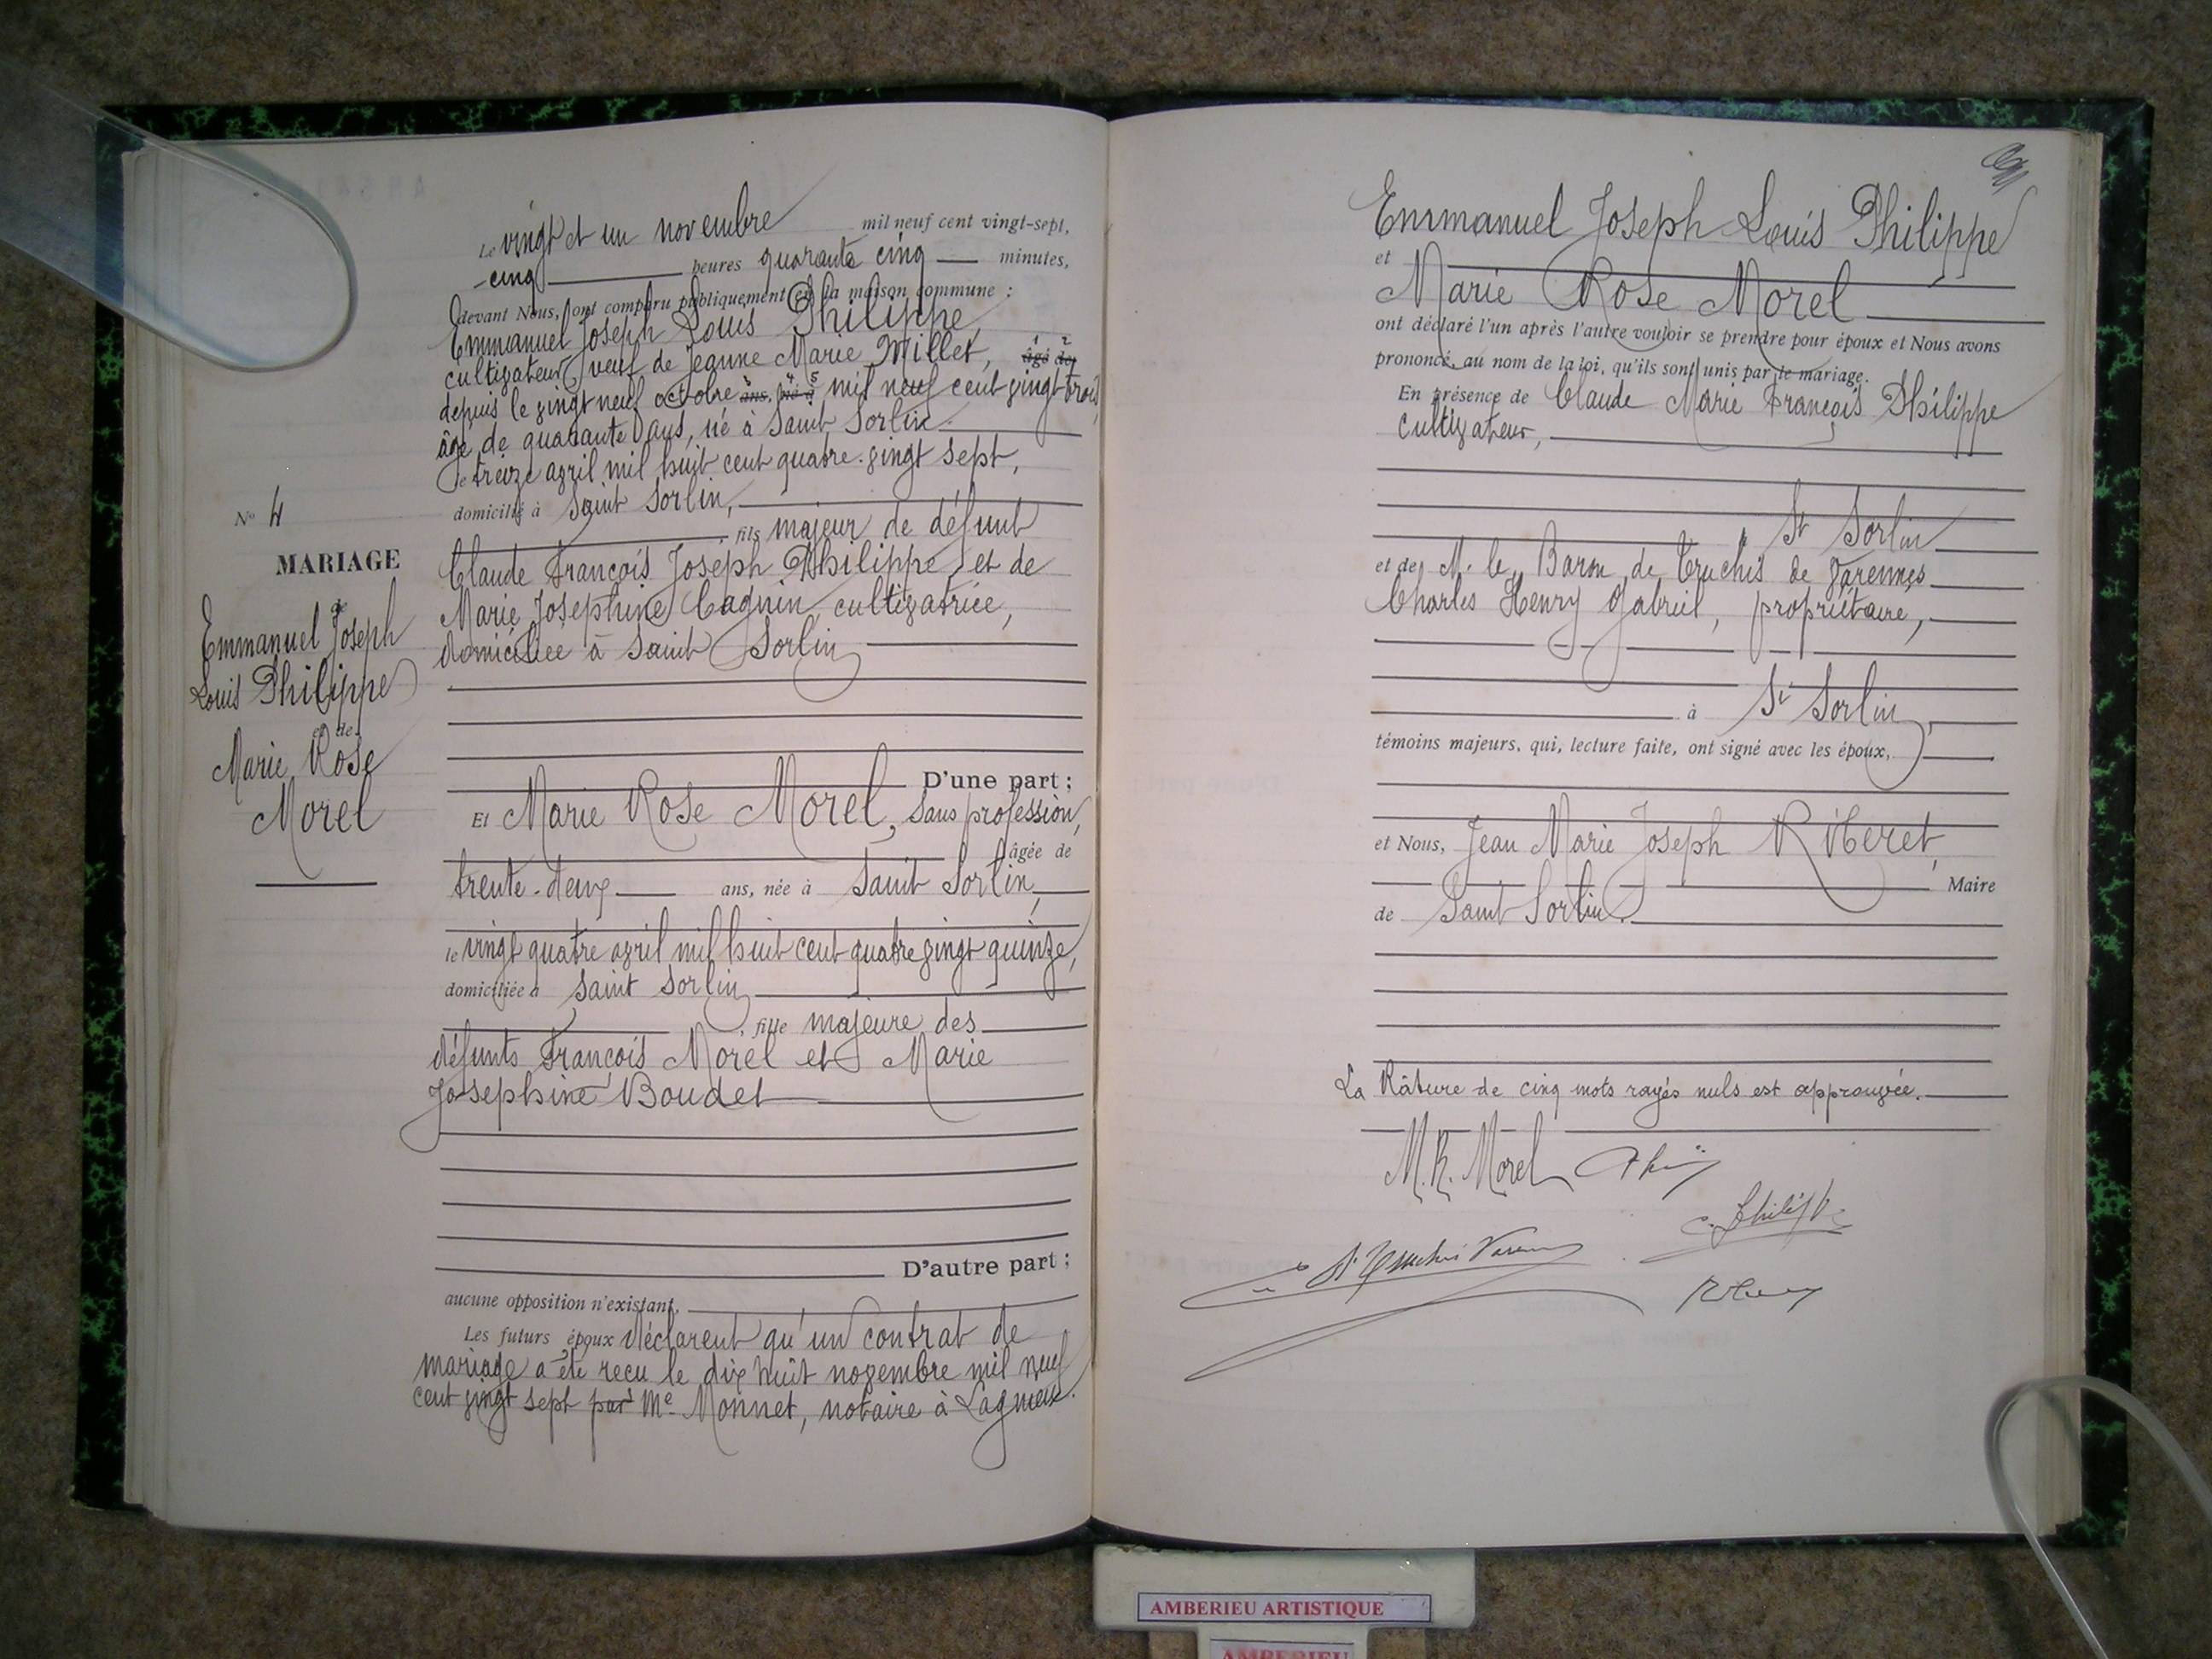 Le vingt et un novembre mil neuf cent vingt-sept,
cinq heures quarante cinq minutes,
devant Nous, ont comparu publiquement en la maison commune :
Emmanuel Joseph Louis Philippe,
cultivateur, veuf de Jeanne Marie Millet, âgé de
depuis le vingt neuf octobre ans, né à mil neuf cent vingt trois,
âgé de quarante ans, né à Saint Sorlin
le treize avril mil huit cent quatre-vingt sept,
domicilié à Saint Sorlin,
fils majeur de défunt
Claude François Joseph Philippe, et de
Marie Josephine Cagnin, cultivatrice,
domiciliée à Saint Sorlin
D'une part ;
Et Marie Rose Morel, Sans profession,
âgée de
trente-deux ans, née à Saint Sorlin,
le vingt quatre avril mil huit cent quatre vingt quinze,
domiciliée à Saint Sorlin
, fille majeure des
défunts François Morel et Marie
Josephine Boudet
D'autre part ;
aucune opposition n'existant,
Les futurs époux déclarent qu'un contrat de
mariage a été reçu le dix huit novembre mil neuf
cent vingt sept par Me Monnet, notaire à Lagnieu.
No 4
MARIAGE
de
Emmanuel Joseph
Louis Philippe
et de
Marie Rose
Morel
Emmanuel Joseph Louis Philippe
et
Marie Rose Morel
ont déclaré l'un après l'autre vouloir se prendre pour époux et Nous avons
prononcé, au nom de la loi, qu'ils sont unis par le mariage.
En présence de Claude Marie François Philippe
cultivateur,
à St Sorlin
et de M. le Baron de Truchis de Varennes
Charles Henry Gabriel, propriétaire,
à St Sorlin,
témoins majeurs, qui, lecture faite, ont signé avec les époux,
et Nous, Jean Marie Joseph Riberet,
Maire
de Saint Sorlin.
La Râture de cinq mots rayés nuls est approuvée.
M. R. Morel
C. Philippe
de Truchis Varennes
AMBERIEU ARTISTIQUE
AMBERIEU